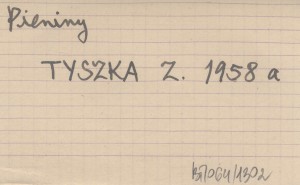 Pieniny
TYSZKA Z. 1958 a
B7064/1302